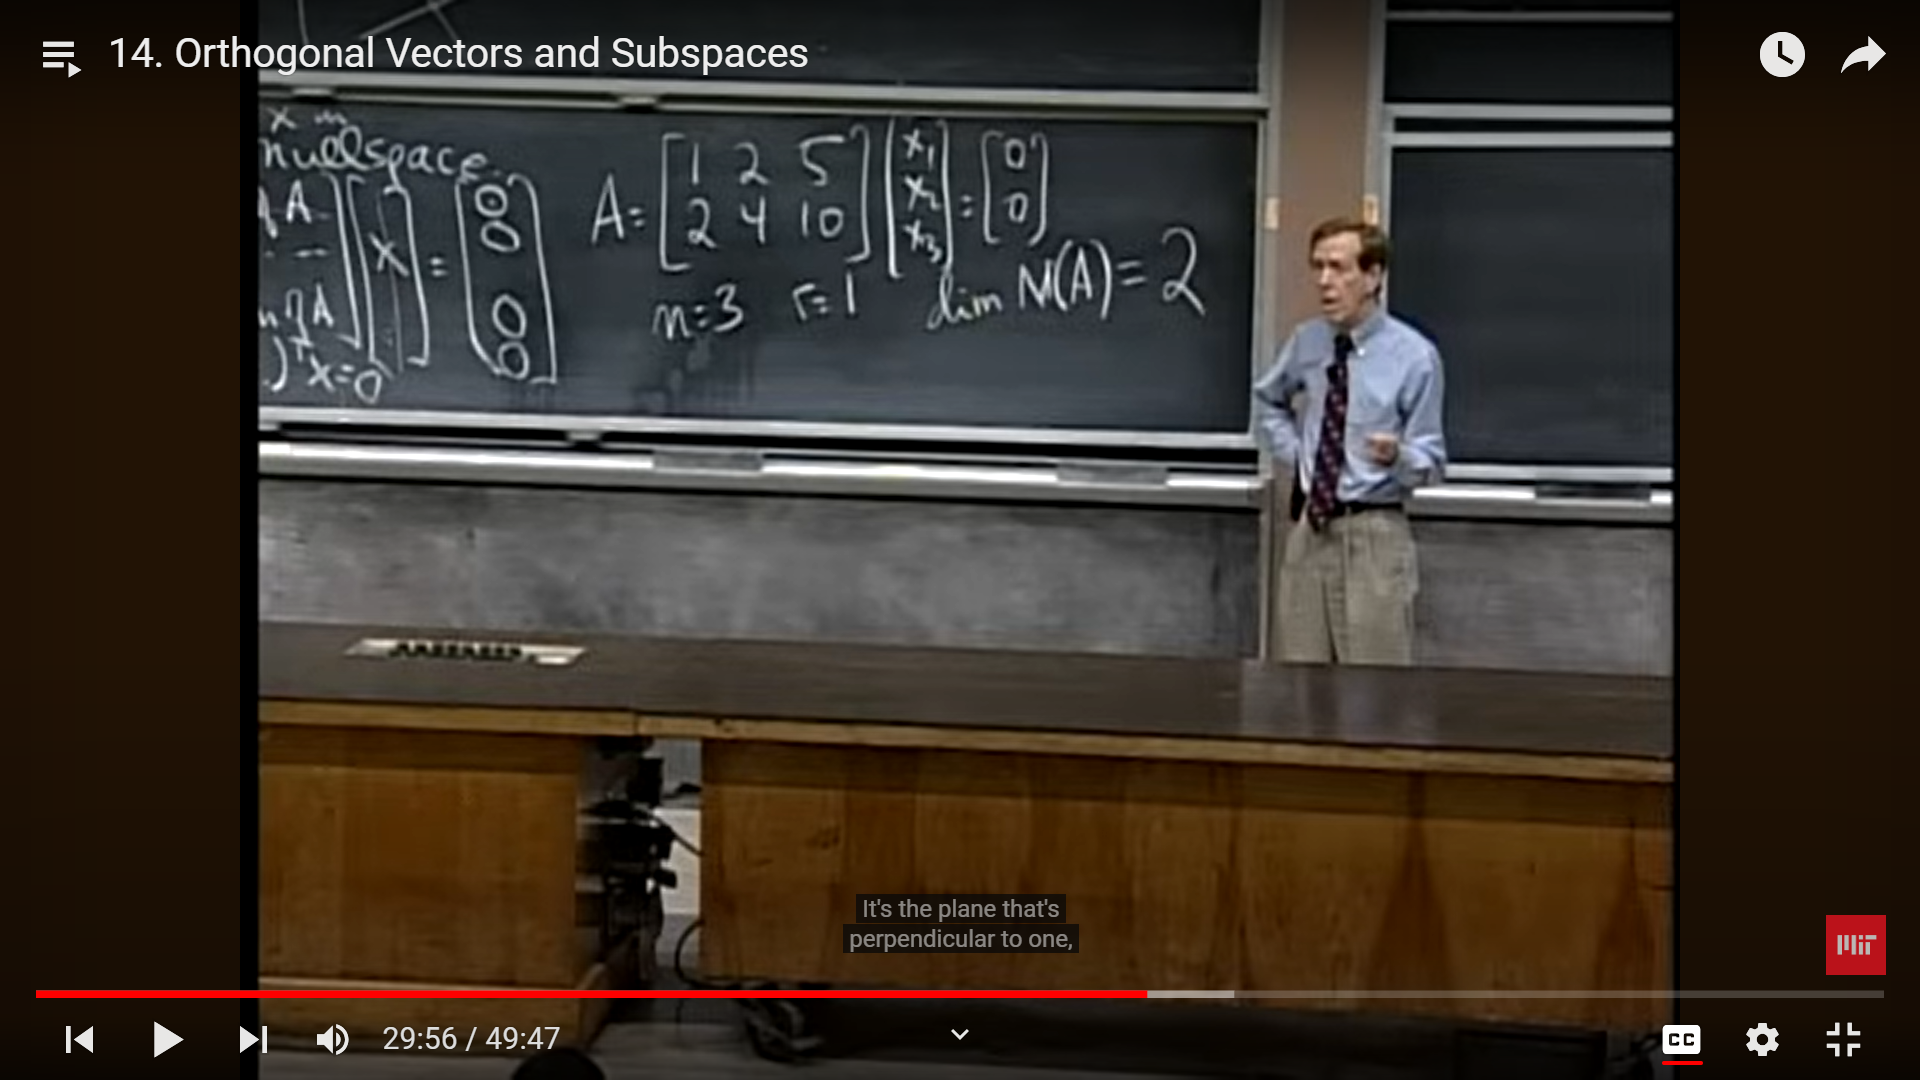 14. Orthogonal Vectors and Subspaces
x
nullspace
A
x = 0 0 0 0
A
)ᵀx=0
A= [1 2 5
2 4 10] [x₁ x₂ x₃] = [0 0]
n=3 r=1 dim N(A)=2
It's the plane that's
perpendicular to one,
MIT
29:56 / 49:47
CC